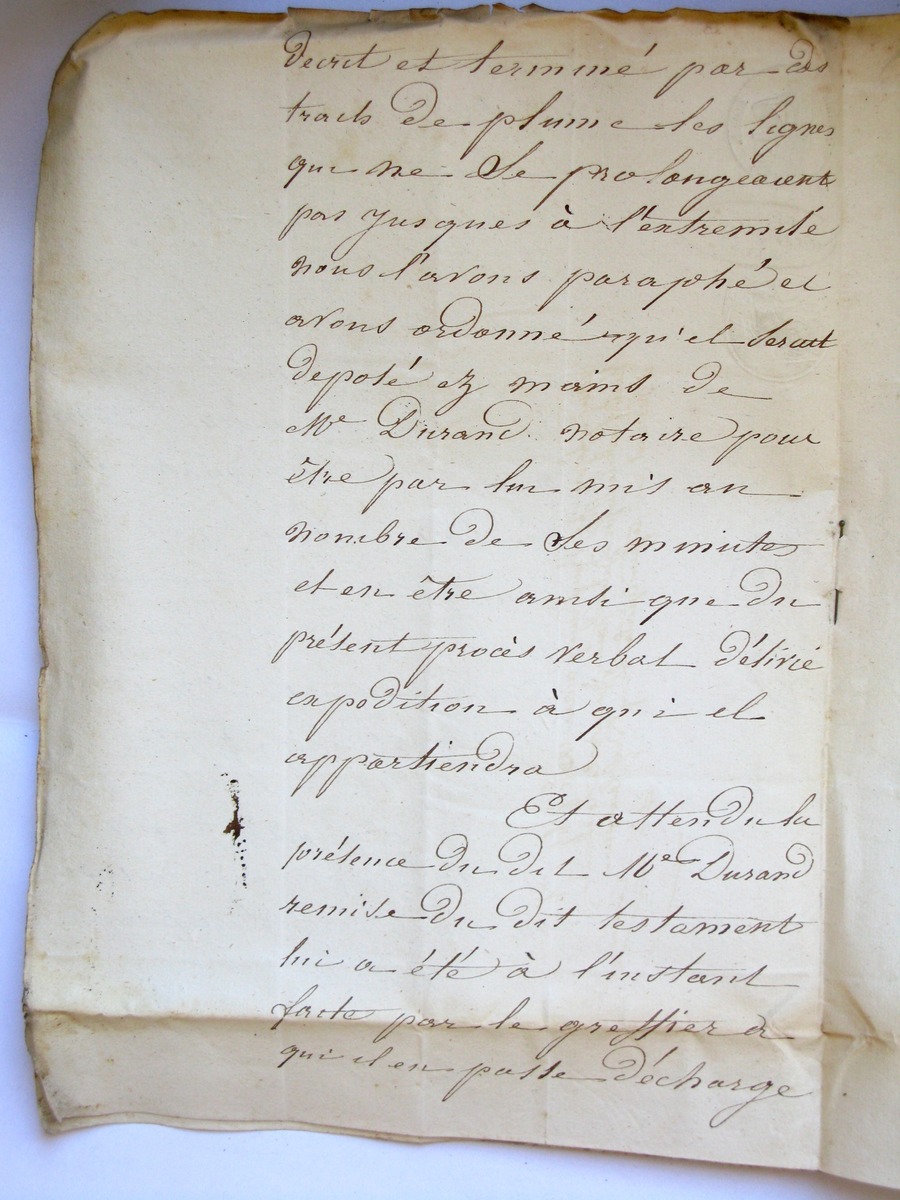 decrit et terminé par des
traits de plume les lignes
qui ne se prolongeaient
pas jusques à l'extremité
nous l'avons paraphé et
avons ordonné qu'il serait
deposé ez mains de
Me Durand notaire pour
être par lui mis au
nombre de ses minutes
et en être ainsi que du
présent procès verbal délivré
expedition à qui il
appartiendra
Et attendu la
présence du dit Me Durand
remise du dit testament
lui a été à l'instant
faite par le greffier a
qui il en passe décharge